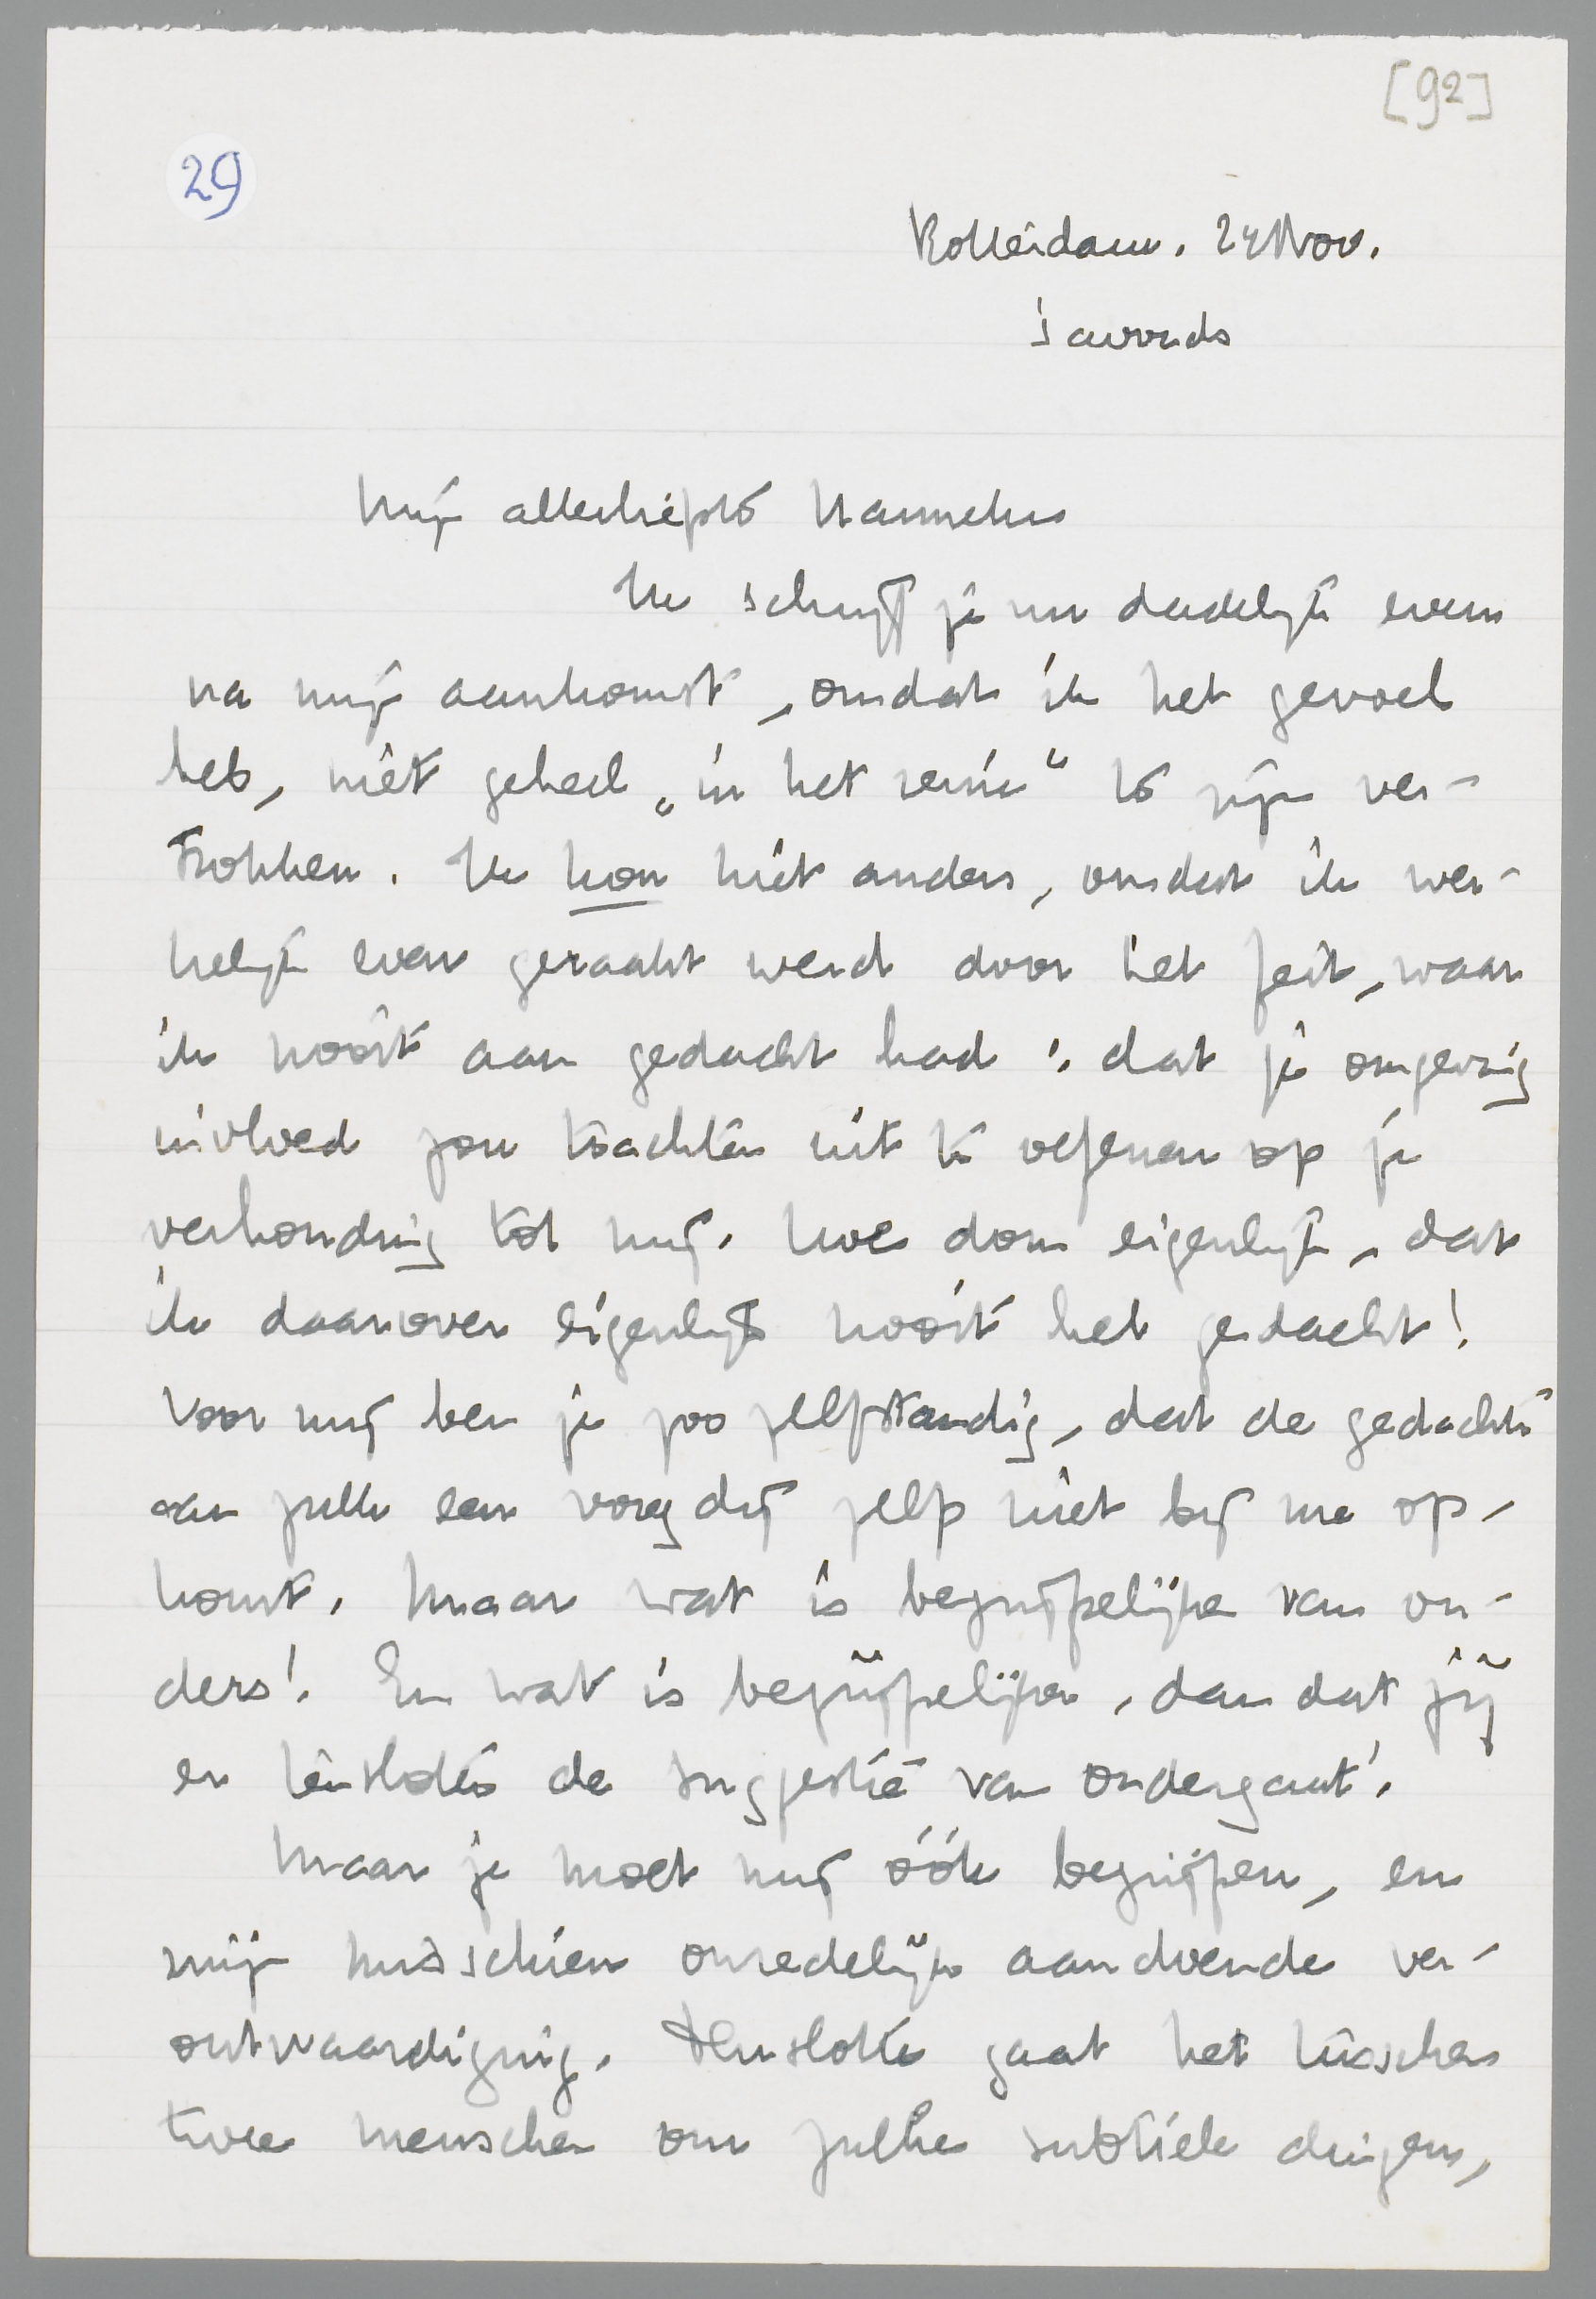 [92]
29
Rotterdam. 24 Nov.
's avonds
Mijn allerliefste Hanneke
Ik schrijf je nu dadelijk even
na mijn aankomst, omdat ik het gevoel
heb, niet geheel „in het reine" te zijn ver-
trokken. Ik kon niet anders, omdat ik wer-
kelijk even geraakt werd door het feit, waar
ik nooit aan gedacht had: dat je omgeving
invloed zou trachten uit te oefenen op je
verhouding tot mij. Hoe dom eigenlijk, dat
ik daarover eigenlijk nooit heb gedacht!
Voor mij ben je zoo zelfstandig, dat de gedachte
aan zulk een voogdij zelfs niet bij me op-
komt. Maar wat is begrijpelijker van ou-
ders! En wat is begrijpelijker, dan dat jij
er tenslotte de suggestie van ondergaat!
Maar je moet mij óók begrijpen, en
mijn misschien onredelijk aandoende ver-
ontwaardiging. Tenslotte gaat het tusschen
twee menschen om zulke subtiele dingen,